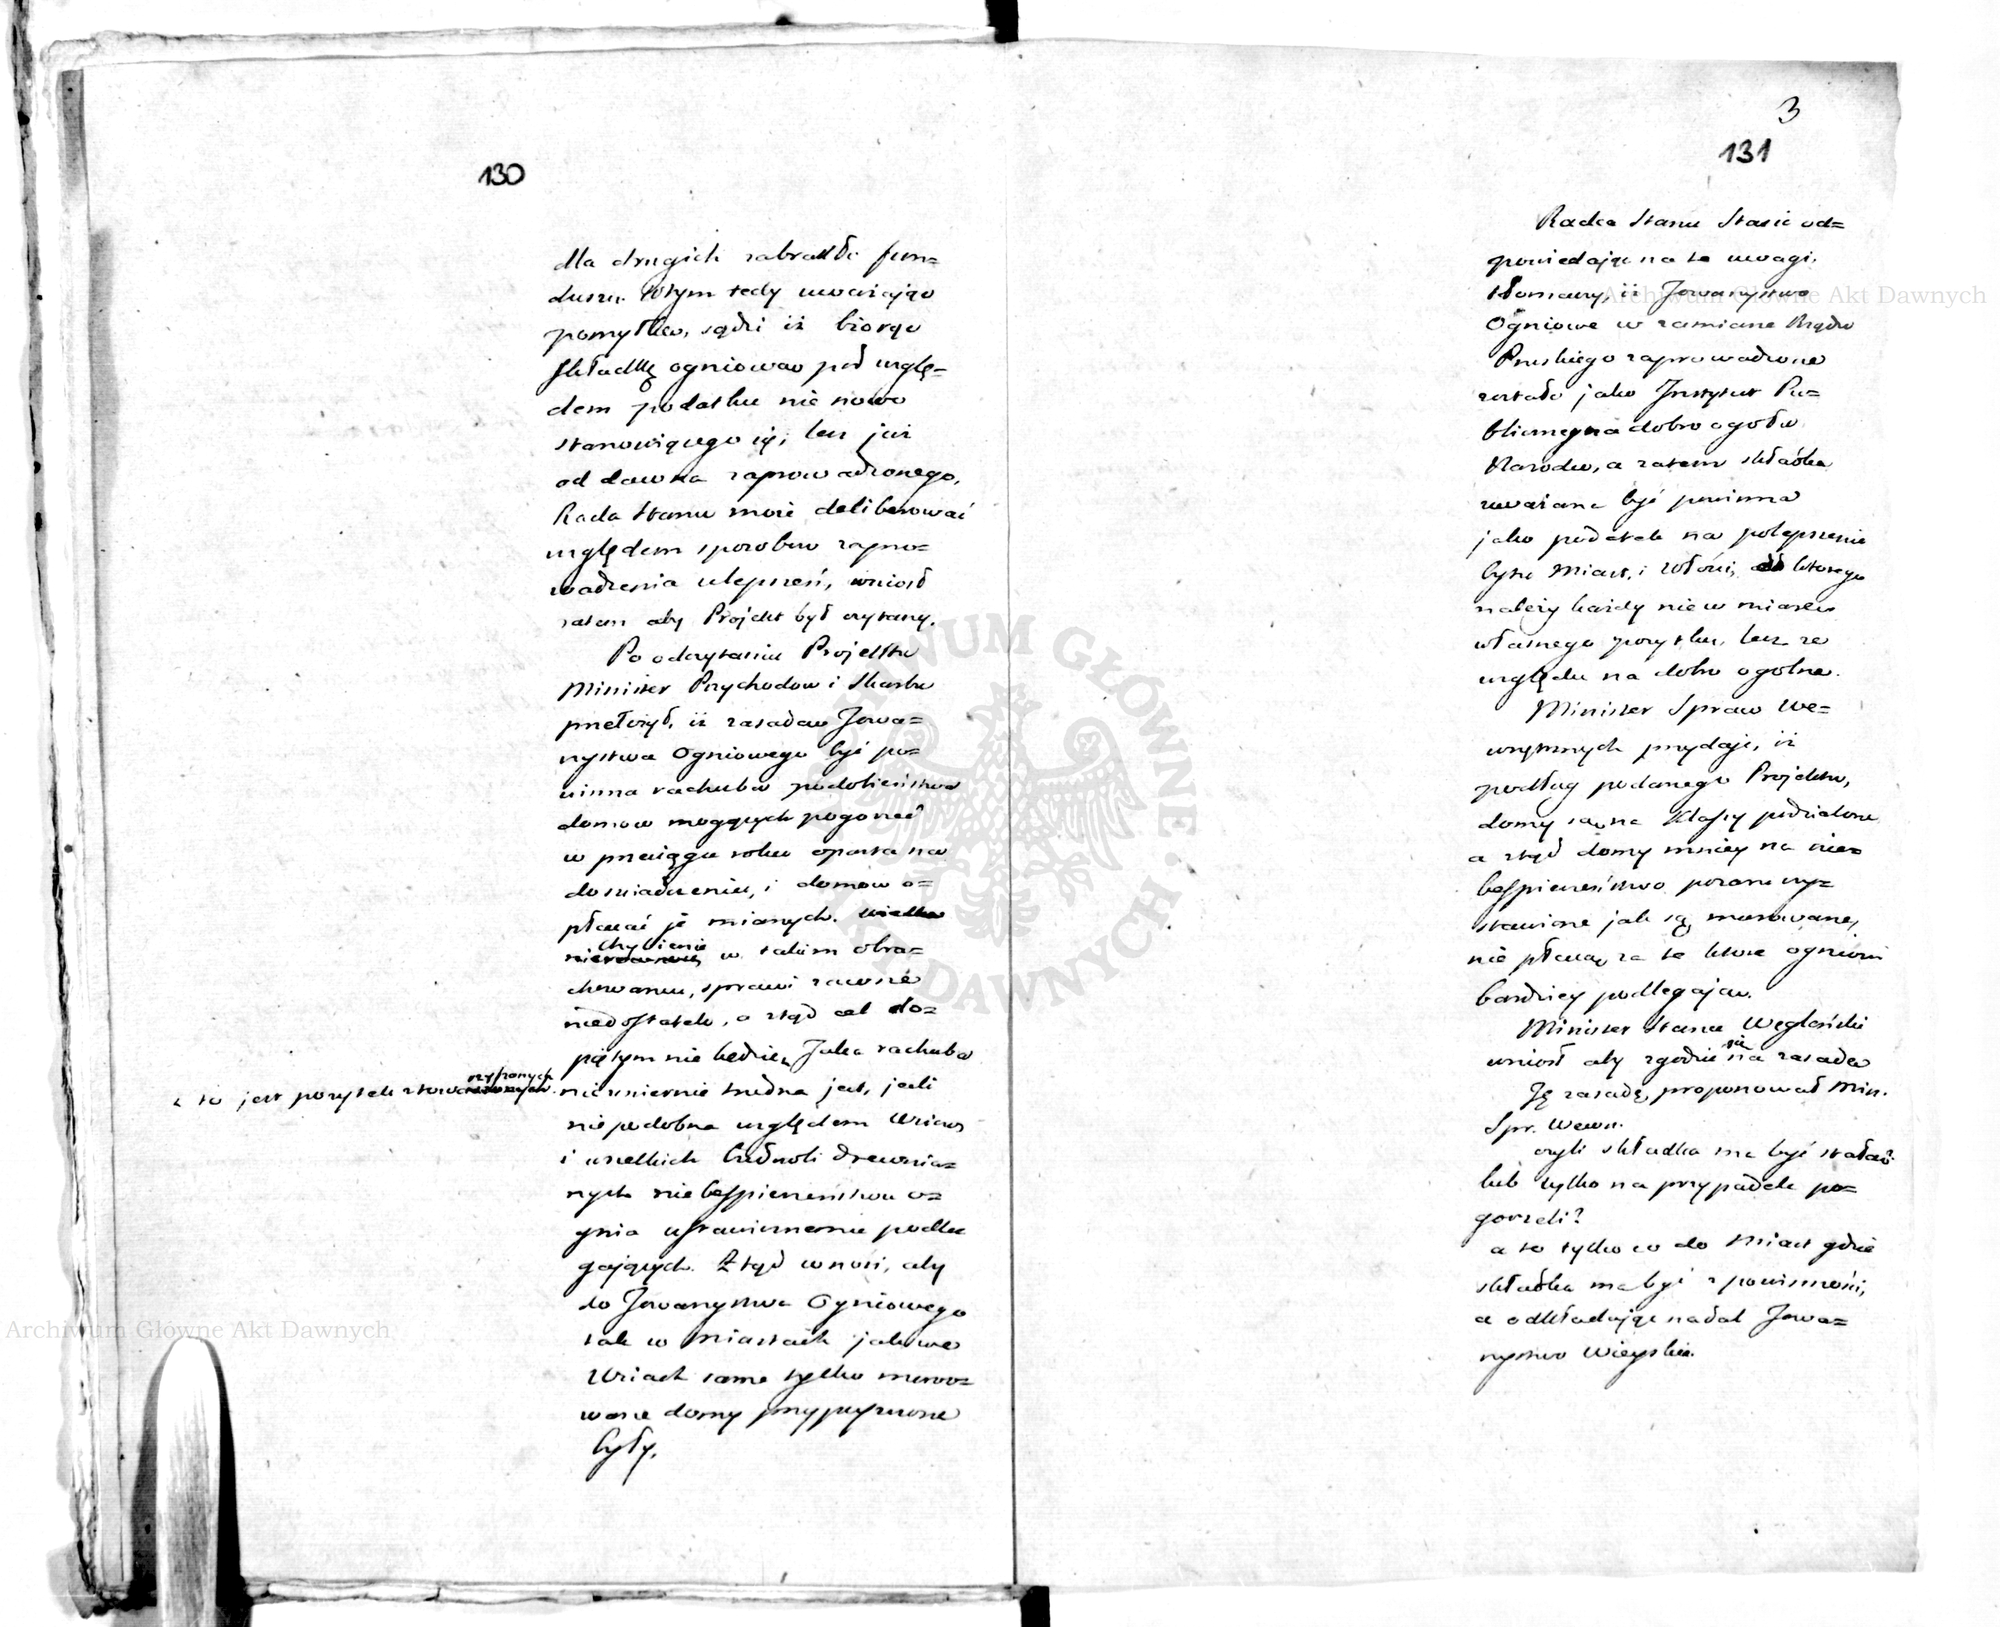 130
dla drugich zabrakło fun=
duszu. W tym tedy uważając
pomysłów, sądzi iż biorąc
składkę ogniową pod wzglę=
dem podatku nie nowo
stanowiącego się, lecz już
od dawna zaprowadzonego,
Rada Stanu może deliberować
względem sposobów zapro=
wadzenia ulepszeń, wniosł
zatem aby Projekt był czytany.
Po odczytaniu Projektu
Minister Przychodow i Skarbu
przełożył, iż zasadą Towa=
rzystwa Ogniowego być po=
winna rachuba podobieństwa
domow mogących pogorzeć
w przeciągu roku oparta na
doswiadczeniu, i domow o=
płacać je mianych. Wielkie
chybienie
nierowność w takim obra=
chowaniu, sprawi zawsze
niedostatek, a ztąd cel do=
pięty nie będzie, Taka rachuba
< to jest pożytek stowarzyszonych.
niezmiernie trudna jest, jeśli
niepodobna względem Wsiow
i wszelkich budowli drewnia=
nych niebespieczeństwu o=
gnia ustawicznemu podle
gających. Ztąd wnosi, aby
do Towarzystwa Ogniowego
tak w Miastach jak we
Wsiach same tylko muro=
wane domy przypuszczone
były.
3
131
Radca Stanu Stasic od=
powiedając na te uwagi,
tłomaczy, iż Towarzystwo
Ogniowe w zamiarze Rządu
Pruskiego zaprowadzone
zostało jako Instytut Pu=
bliczny na dobro ogołu
Narodu, a zatem składka
uważana być powinna
jako podatek na polepszenie
bytu Miast, i Włości, do ktorego
należy każdy nie w miarę
własnego pożytku, lecz ze
względu na dobro ogolne.
Minister Spraw We=
wnętrznych przydaje, iż
podług podanego Projektu,
domy są na Klassy podzielone
a ztąd domy mniey na nie=
bespieczeństwo pożaru wy=
stawione jak są murowane,
nie płacą za te ktore ogniowi
bardziey podlegają.
Minister Stanu Węgleński
wniosł aby zgodzić się na zasadę
Tę zasadę, proponował Min.
Spr. Wewn.
czyli składka ma być stała?
lub tylko na przypadek po=
gorzeli?
a to tylko co do Miast gdzie
składka ma być z powinności,
a odkładając nadal Towa=
rzystwo Wieyskie.